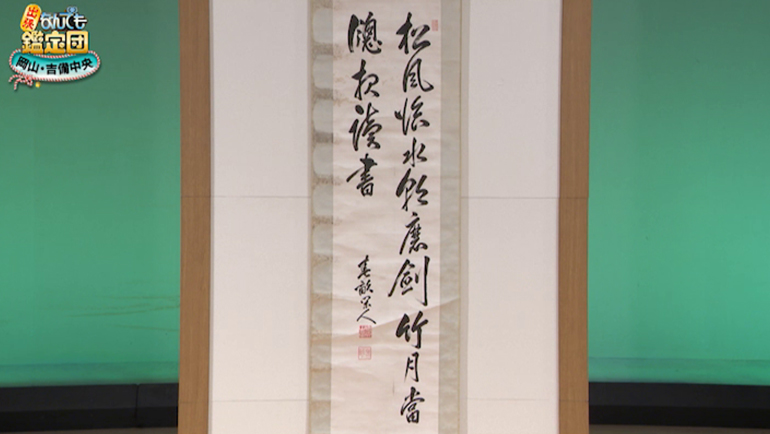 出張なんでも
鑑定団
岡山・吉備中央
松風臨水朝磨剣竹月當
窓夜讀書
春畝山人